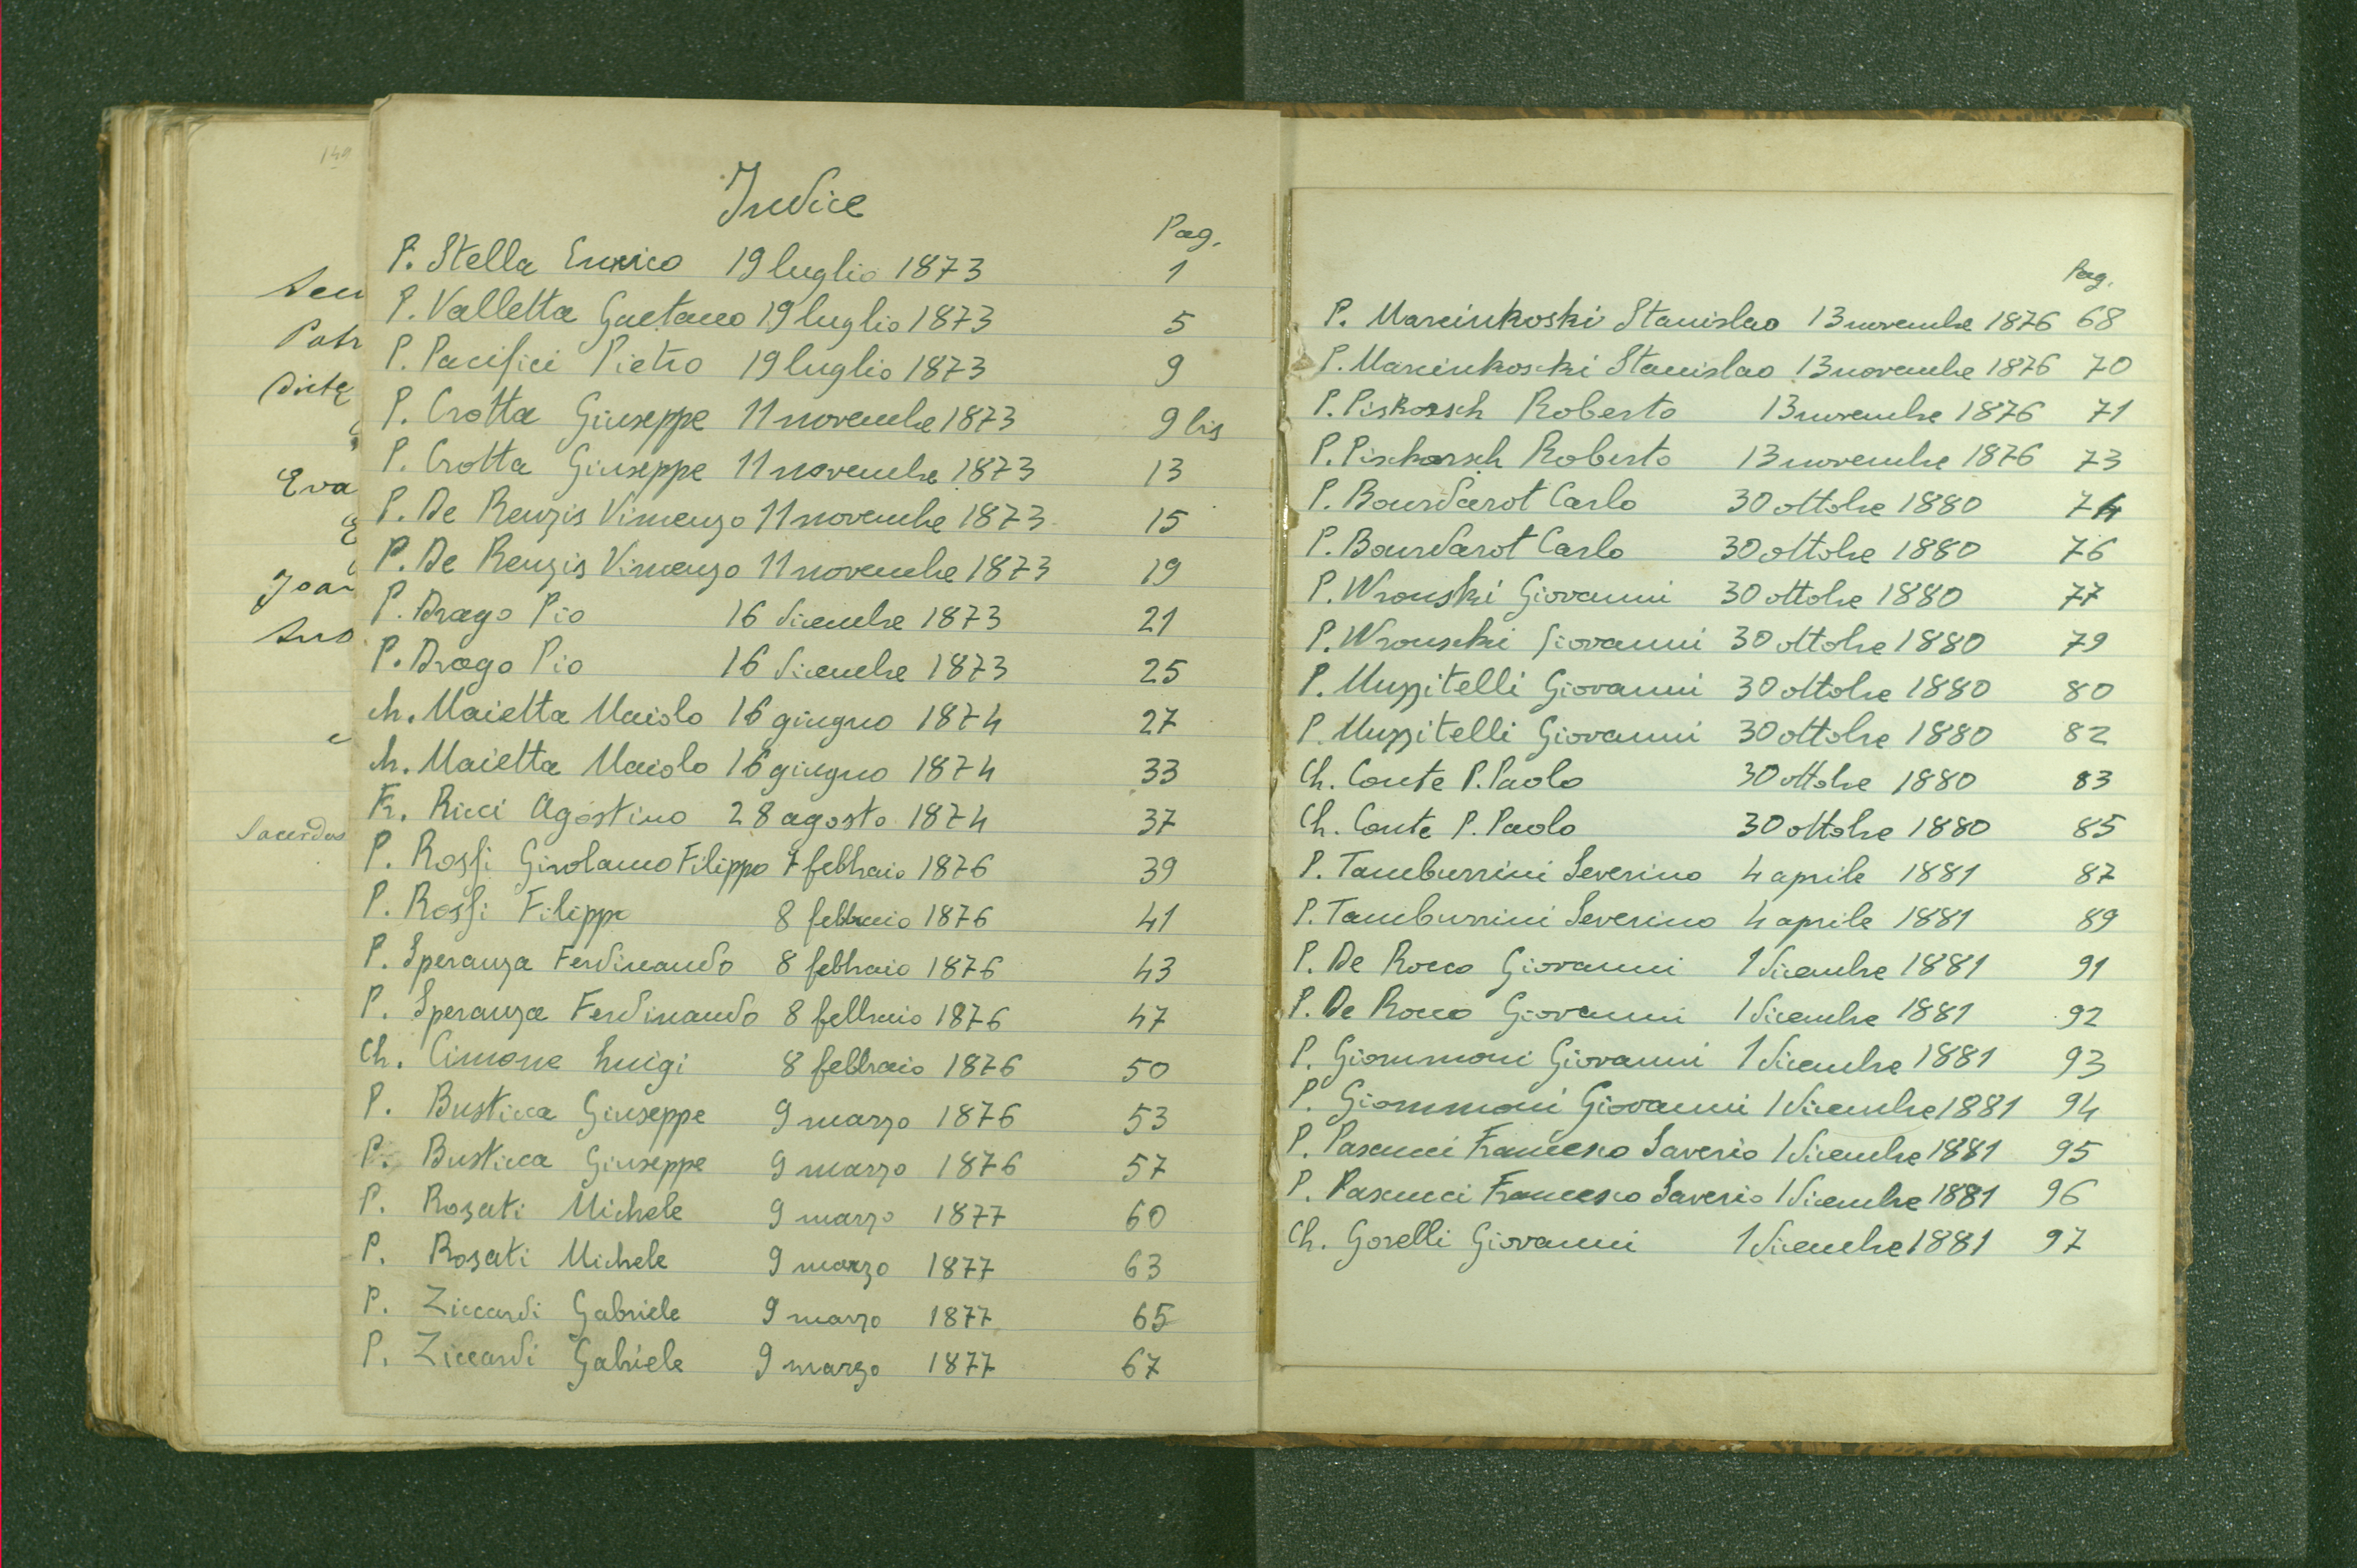 149
Sacerdos
Indice
Pag.
P. Stella Enrico 19 luglio 1873 1
P. Valletta Gaetano 19 luglio 1873 5
P. Pacifici Pietro 19 luglio 1873 9
P. Crotta Giuseppe 11 novembre 1873 9 bis
P. Crotta Giuseppe 11 novembre 1873 13
P. De Renzis Vincenzo 11 novembre 1873 15
P. De Renzis Vincenzo 11 novembre 1873 19
P. Drago Pio 16 dicembre 1873 21
P. Drago Pio 16 dicembre 1873 25
Ch. Maietta Maiolo 16 giugno 1874 27
Ch. Maietta Maiolo 16 giugno 1874 33
Fr. Ricci Agostino 28 agosto 1874 37
P. Rossi Girolamo Filippo 7 febbraio 1876 39
P. Rossi Filippo 8 febbraio 1876 41
P. Speranza Ferdinando 8 febbraio 1876 43
P. Speranza Ferdinando 8 febbraio 1876 47
Ch. Cimone Luigi 8 febbraio 1876 50
P. Busticca Giuseppe 9 marzo 1876 53
P. Busticca Giuseppe 9 marzo 1876 57
P. Rosati Michele 9 marzo 1877 60
P. Rosati Michele 9 marzo 1877 63
P. Ziccardi Gabriele 9 marzo 1877 65
P. Ziccardi Gabriele 9 marzo 1877 67
Pag.
P. Marcinkoski Stanislao 13 novembre 1876 68
P. Marcinkoscki Stanislao 13 novembre 1876 70
P. Piskorsch Roberto 13 novembre 1876 71
P. Pischorsch Roberto 13 novembre 1876 73
P. Bourdarot Carlo 30 ottobre 1880 74
P. Bourdarot Carlo 30 ottobre 1880 76
P. Wronski Giovanni 30 ottobre 1880 77
P. Wronscki Giovanni 30 ottobre 1880 79
P. Muzzitelli Giovanni 30 ottobre 1880 80
P. Muzzitelli Giovanni 30 ottobre 1880 82
Ch. Conte P. Paolo 30 ottobre 1880 83
Ch. Conte P. Paolo 30 ottobre 1880 85
P. Tamburrini Severino 4 aprile 1881 87
P. Tamburrini Severino 4 aprile 1881 89
P. De Rocco Giovanni 1 dicembre 1881 91
P. De Rocco Giovanni 1 dicembre 1881 92
P. Giommoni Giovanni 1 dicembre 1881 93
P. Giommoni Giovanni 1 dicembre 1881 94
P. Pascucci Francesco Saverio 1 dicembre 1881 95
P. Pascucci Francesco Saverio 1 dicembre 1881 96
Ch. Gorelli Giovanni 1 dicembre 1881 97